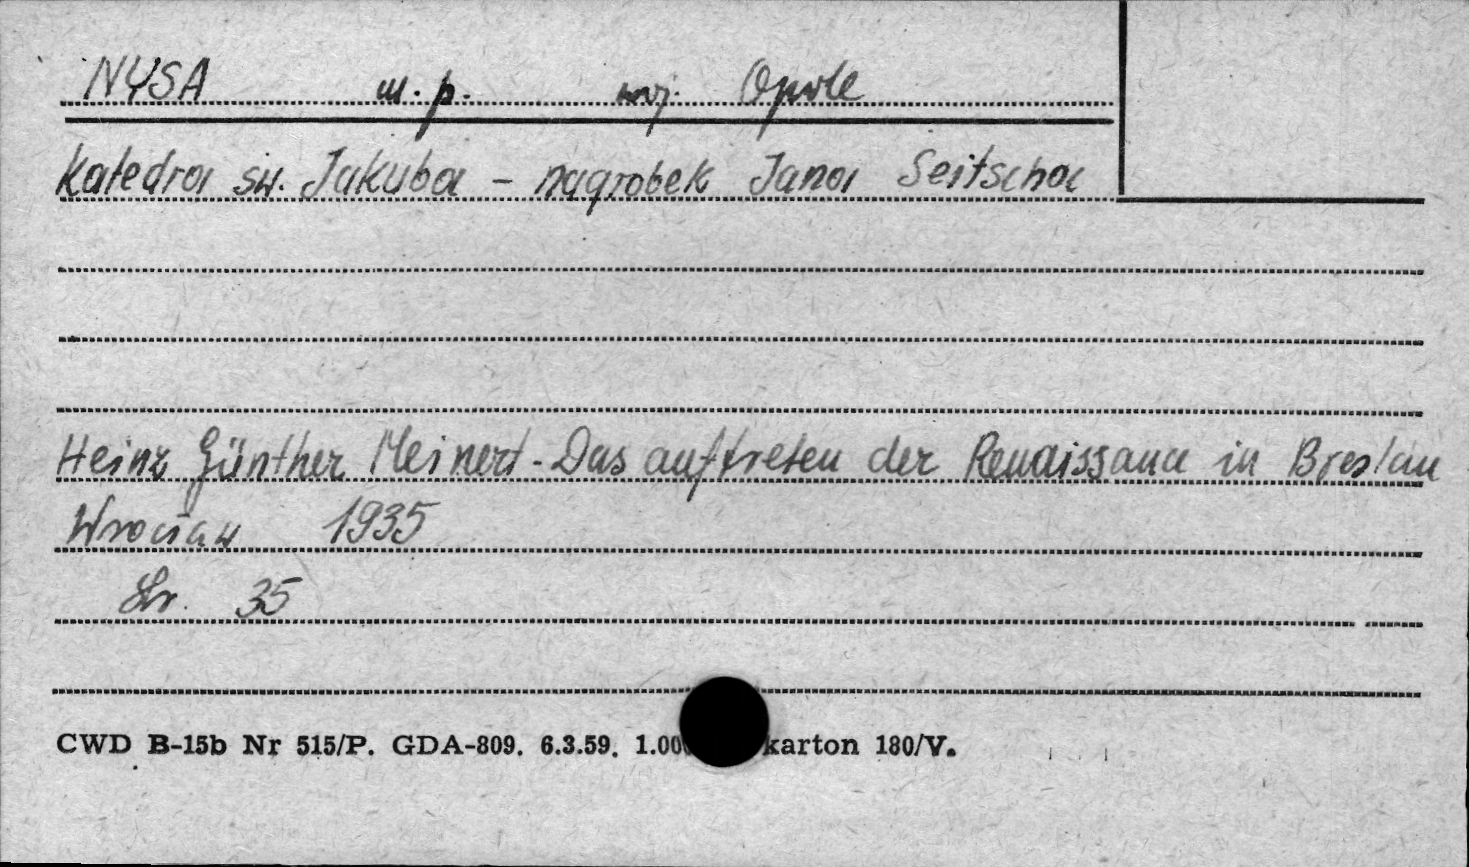 NYSA m. p. woj. Opole
Katedra św. Jakuba - nagrobek Jana Seitscha
Heinz Günther Meinert - Das auftreten der Renaissance in Breslau
Wrocław 1935
Str. 35
CWD B-15b Nr 515/P. GDA-809. 6.3.59. 1.00 karton 180/V.